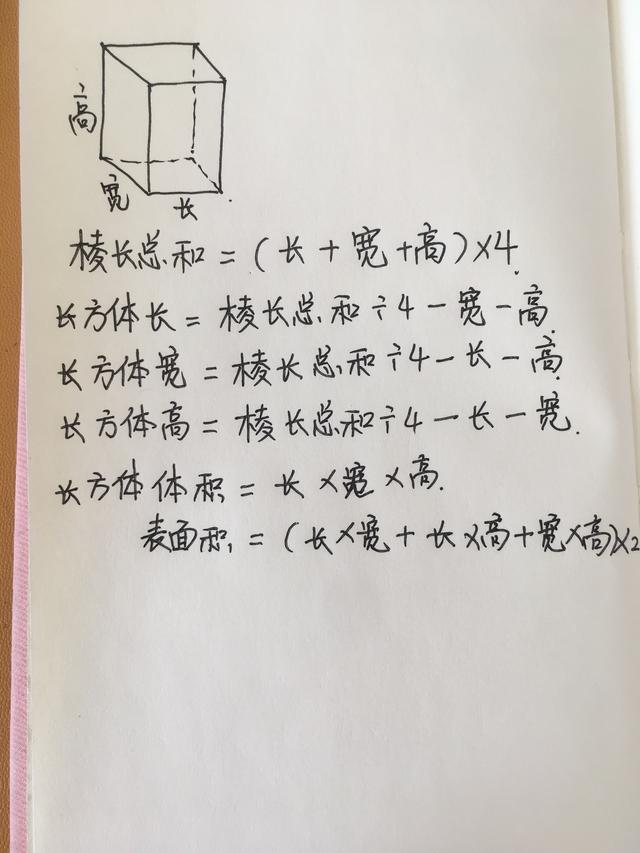 高
宽
长
棱长总和=(长+宽+高)×4.
长方体长=棱长总和÷4-宽-高.
长方体宽=棱长总和÷4-长-高.
长方体高=棱长总和÷4-长-宽.
长方体体积=长×宽×高.
表面积=(长×宽+长×高+宽×高)×2